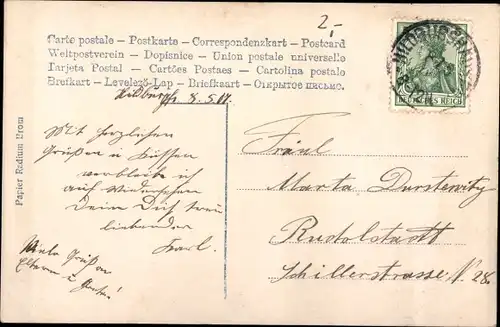 2,-
Carte postale – Postkarte – Correspondenzkart – Postcard
Weltpostverein – Dopisnice – Union postale universelle
Tarjeta Postal – Cartões Postaes – Cartolina postale
Brefkart – Levelező-Lap – Briefkaart – Открытое письмо.
DEUTSCHES REICH
Mit herzlichen
Grüßen u. Küssen
verbleibe ich
auf Wiedersehen
Dein Dich treu
liebender
Karl.
Viele Grüße an
Eltern u.
Fräul
Marta
Rudolstadt
Schillerstrasse N. 28
Papier Radium Brom